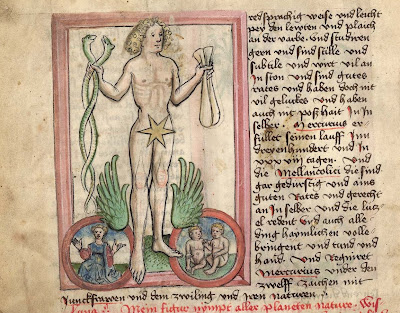 redsprachig weise und leicht
pey den lewten und plaich
an der varbe. und studiren
gern und sind stille und
subtile und wirt vil an
In ston und sind gutes
rates und haben doch nit
vil geluckes und haben
auch nit post hait In In
selber. Mercurius er
fullet seinen lauff Inn
dreyenhundert und In
xxxviii tagen. und
die Mellancolici die sind
gar kedwistig und ains
guten Rates und gerecht
an In selber und die lutz
el redent und auch alle
ding haymlichen volle
bringent und tund und
hand. und Regniret
Mercurius under den
zwelff zaichen mit
Junckfrawen und dem zwiling und iren naturen
Mein figur nympt aller planeten nature. Wis